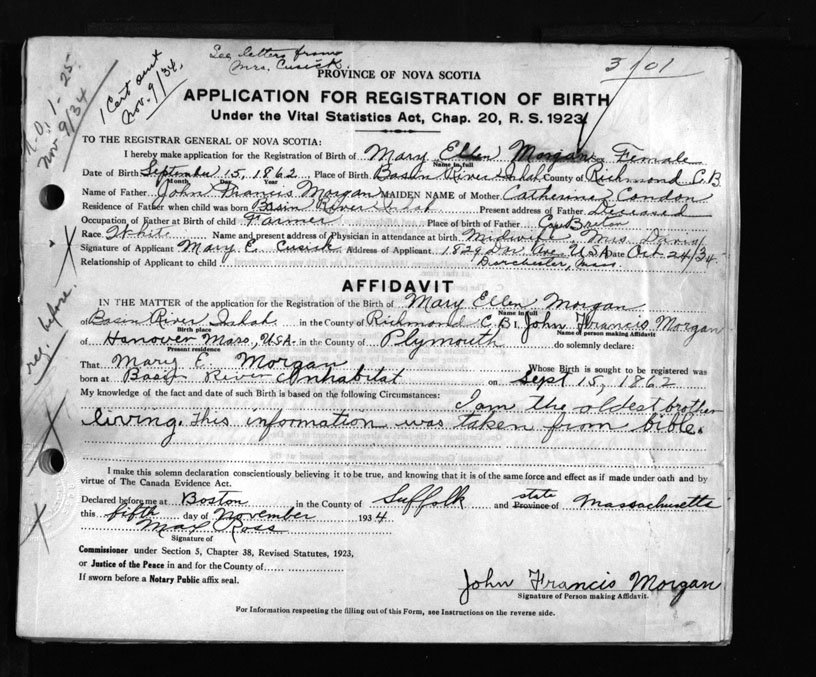 See letters from
Mrs. Cusick.
1 Cert sent
Nov. 9/34.
1-25-
Nov 9/34
3/01
PROVINCE OF NOVA SCOTIA
APPLICATION FOR REGISTRATION OF BIRTH
Under the Vital Statistics Act, Chap. 20, R. S. 1923
TO THE REGISTRAR GENERAL OF NOVA SCOTIA:
I hereby make application for the Registration of Birth of Mary Ellen Morgan Sex Female
Name in full
Date of Birth September 15, 1862 Place of Birth Basin River Inhab County of Richmond C.B
Month Year
Name of Father John Francis Morgan MAIDEN NAME of Mother Catherine Condon
Residence of Father when child was born Basin River Inhab Present address of Father Deceased
Occupation of Father at Birth of child Farmer Place of birth of Father Cape Breton
Race White Name and present address of Physician in attendance at birth Midwife Mrs. Davis
Signature of Applicant Mary E. Cusick Address of Applicant 182 Dor. Ave. USA Date Oct 24/34
Relationship of Applicant to child Dorchester, Mass
AFFIDAVIT
IN THE MATTER of the application for the Registration of the Birth of Mary Ellen Morgan
Name in full
of Basin River Inhab. in the County of Richmond C.B I, John Francis Morgan
Birth place Name of person making Affidavit
of Hanover Mass., USA. in the County of Plymouth do solemnly declare:
Present residence
That Mary E. Morgan Whose Birth is sought to be registered was
born at Basin River Inhabitat on Sept 15, 1862
My knowledge of the fact and date of such Birth is based on the following Circumstances: I am the oldest brother
living. This information was taken from bible.
I make this solemn declaration conscientiously believing it to be true, and knowing that it is of the same force and effect as if made under oath and by
virtue of The Canada Evidence Act.
Declared before me at Boston in the County of Suffolk and state Province of Massachusetts
this fifth day of November 1934
Max Ross
Signature of
Commissioner under Section 5, Chapter 38, Revised Statutes, 1923,
or Justice of the Peace in and for the County of
If sworn before a Notary Public affix seal.
John Francis Morgan
Signature of Person making Affidavit.
For Information respecting the filling out of this Form, see Instructions on the reverse side.
reg. before.